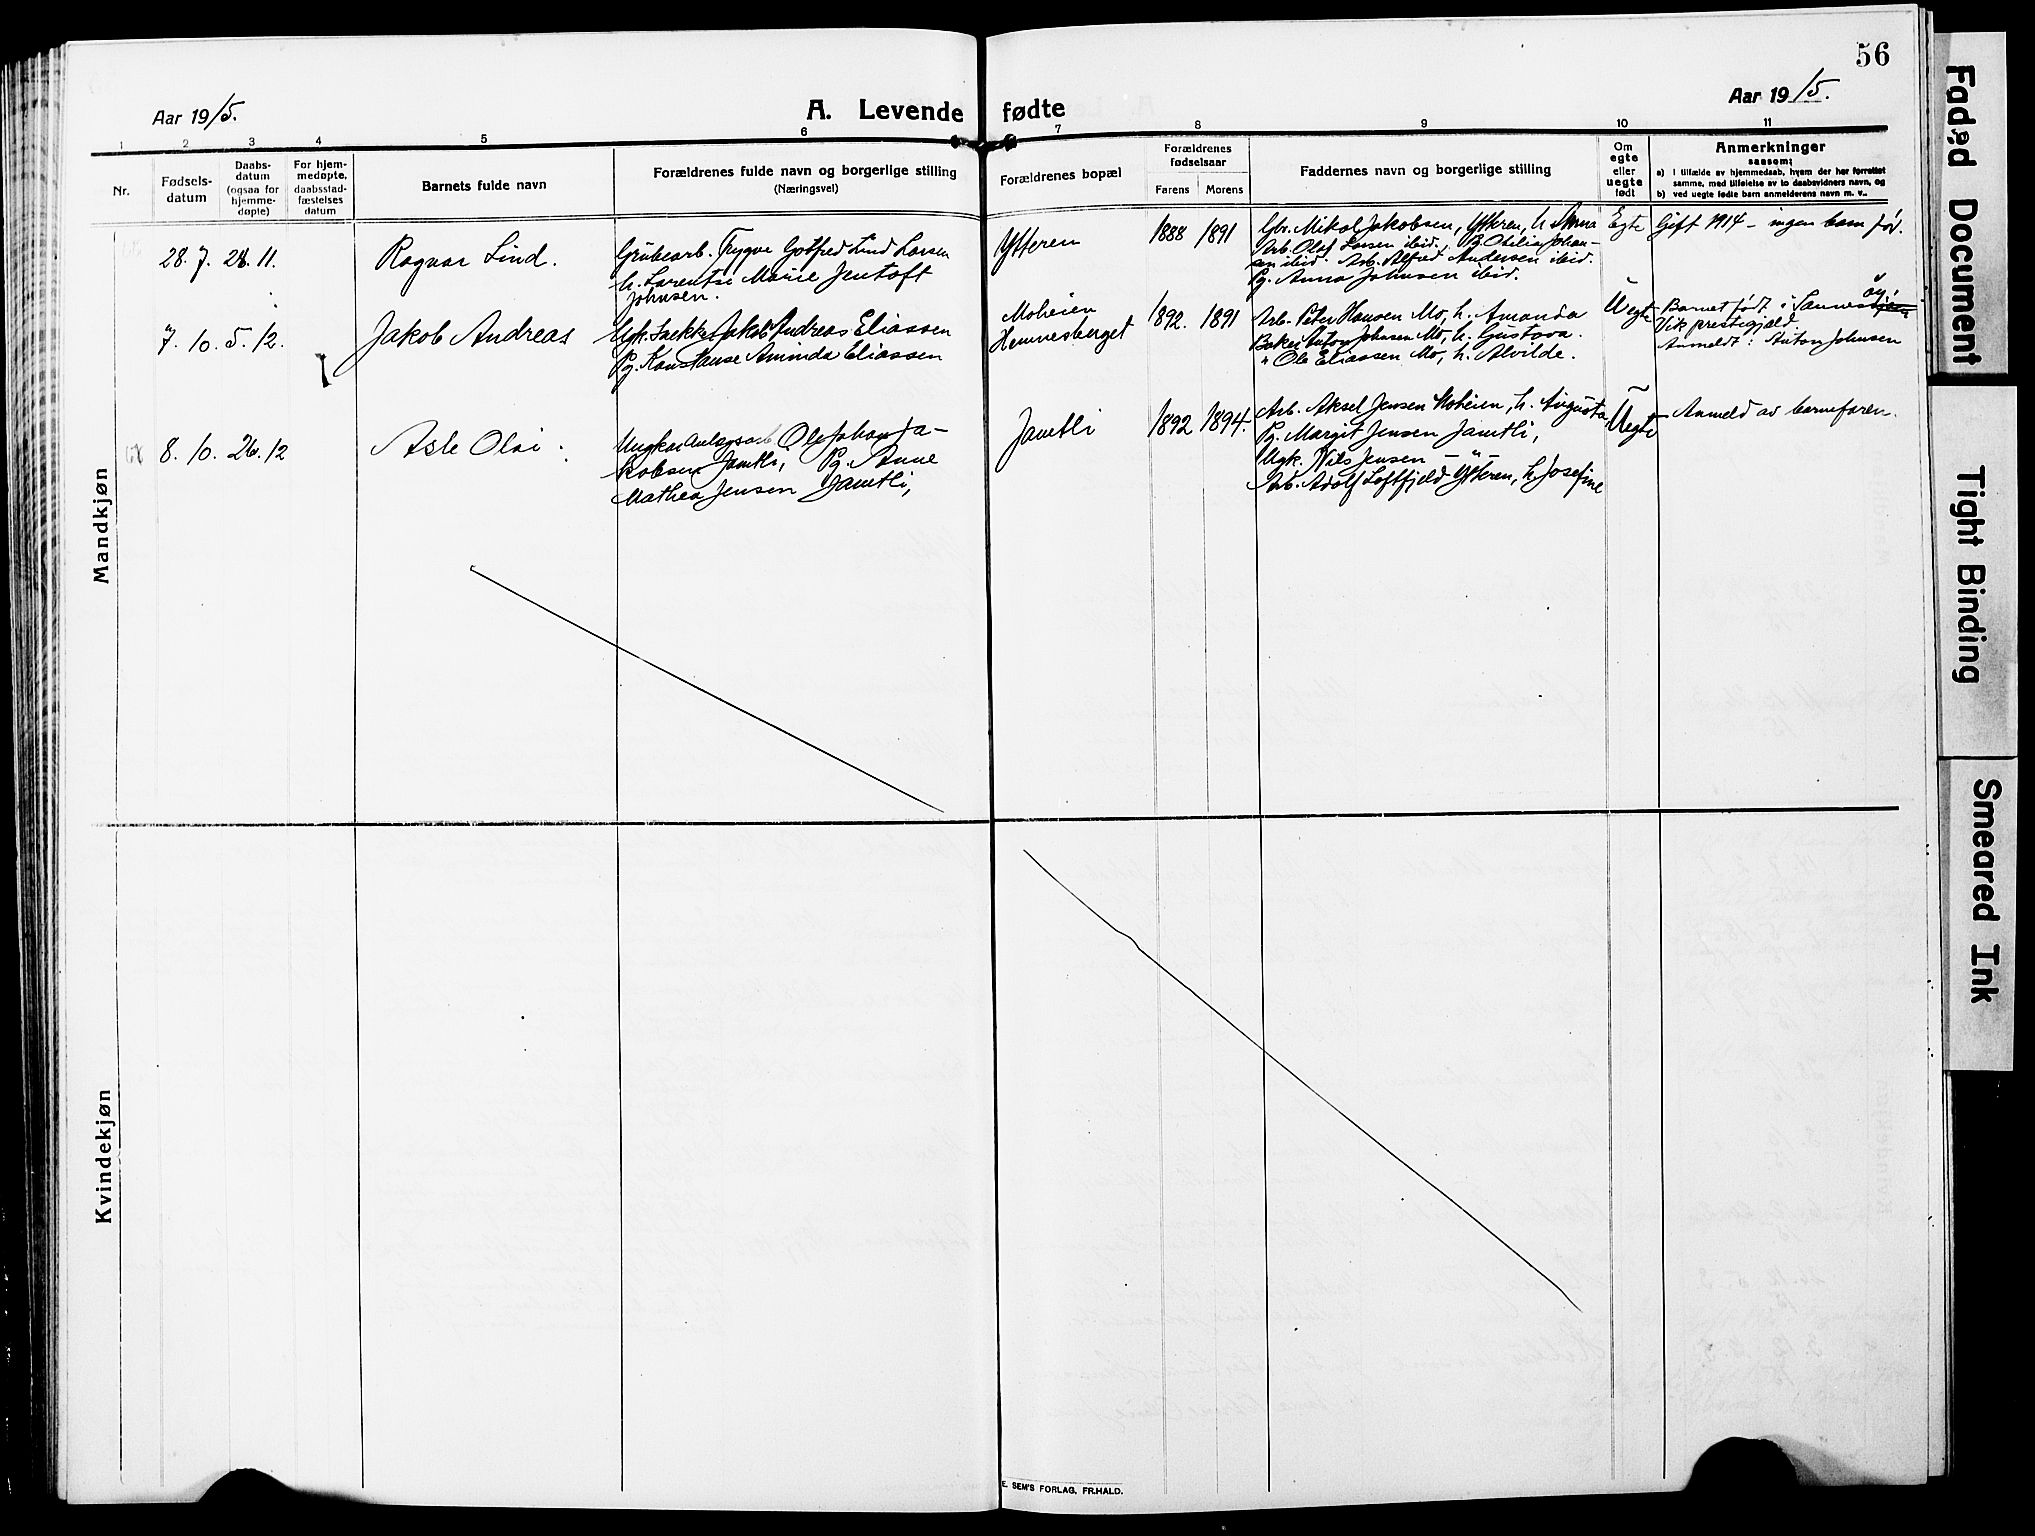 56
Aar 1915.
A. Levende fødte
Aar 1915.
1 2 3 4 5 6 7 8 9 10 11
Nr.
Fødsels-
datum
Daabs-
datum
(ogsaa for
hjemme-
døpte)
For hjem-
medøpte,
daabsstad-
fæstelses
datum
Barnets fulde navn
Forældrenes fulde navn og borgerlige stilling
(Næringsvei)
Forældrenes bopæl
Forældrenes
fødselsaar
Farens Morens
Faddernes navn og borgerlige stilling
Om
egte
eller
uegte
født
Anmerkninger
saasom:
a) I tilfælde av hjemmedaab, hvem der har forrettet
samme, med tilføielse av to daabsvidners navn, og
b) ved uegte fødte barn anmelderens navn m. v..
Mandkjøn
28. 7. 28. 11.
Ragnar Lind.
Grubearb. Trygve Gotfred Lind Larsen
h. Larentse Marie Jentoft
Johnsen.
Ytteren
1888 1891
Gbr. Mikal Jakobsen, Ytteren, h. Anna
Arb. Olaf Larsen ibid., Pg. Otelia Johan-
sen ibid. Arb. Alfred Andersen ibid.
Pg. Anna Johnsen ibid.
Egte
Gift 1914 - ingen barn før.
7. 10. 5. 12.
Jakob Andreas
Ugk. Jakob Andreas Eliassen
Pg. Konstanse Aminda Eliassen
Moheien
Hemnesberget
1892. 1891
Arb. Peter Hansen Mo, h. Amanda
Baker Anton Johnsen Mo, h. Gustava.
" Ole Eliassen Mo, h. Alvilde.
Uegte
Barnet født i Sannes
Vik prestigjeld
Anmeldt: Anton Johnsen
8. 10. 26. 12
Asle Olai.
Ungkar Anlægsarb. Ole Johan Ja-
kobsen Jamtli, Pg. Anne
Mathea Jensen Jamtli,
Jamtli
1892 1894.
Arb. Aksel Jensen Moheien, h. Augusta,
Pg. Margit Jensen Jamtli,
Ugk. Nils Jensen - " -
Arb. Adolf Loftfjeld Ytteren, h. Josefine
Uegte
Anmeld av barnefaren.
Kvindekjøn
E. SEM'S FORLAG, FR.HALD.
Faded Document
Tight Binding
Smeared Ink